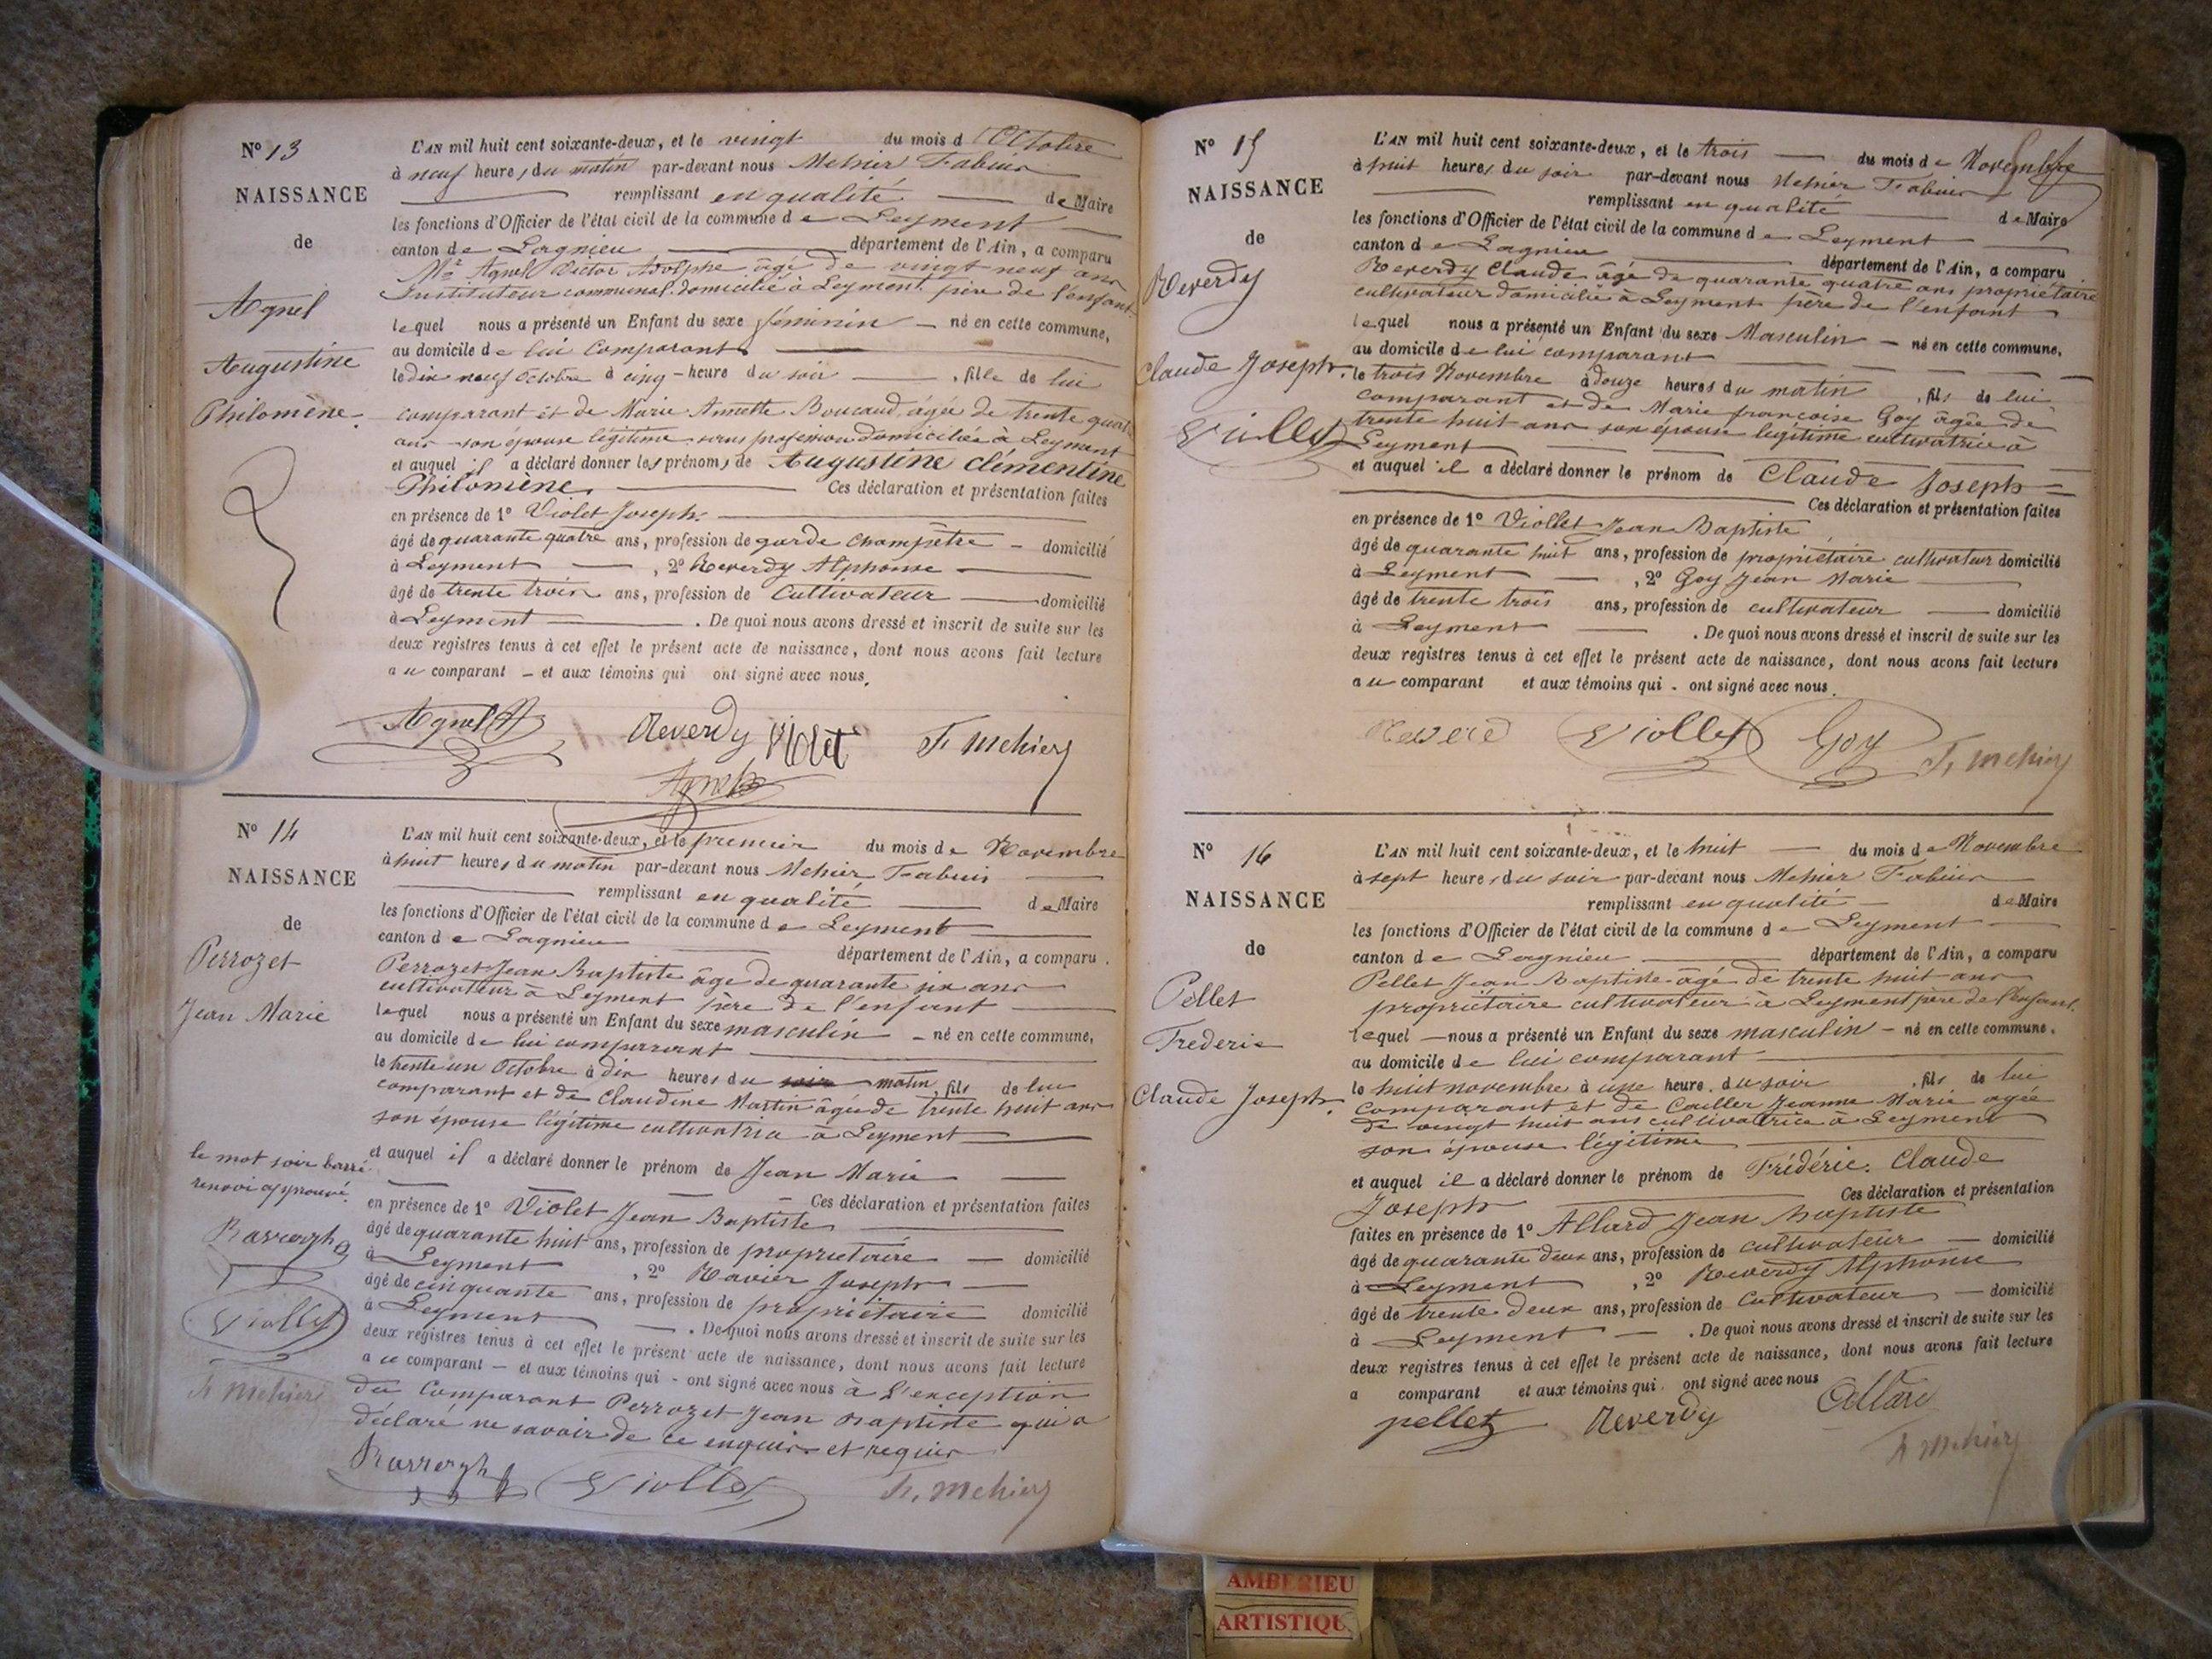 N° 13
NAISSANCE
de
Agnel
Augustine
Philomène.
L'AN mil huit cent soixante-deux, et le vingt du mois d'Octobre
à neuf heures du matin par-devant nous Mehier Fabius
remplissant en qualité de Maire
les fonctions d'Officier de l'état civil de la commune de Leyment
canton de Lagnieu département de l'Ain, a comparu
Mr Agnel Victor Adolphe âgé de vingt neuf ans
Instituteur communal domicilié à Leyment père de l'enfant
lequel nous a présenté un Enfant du sexe féminin né en cette commune,
au domicile de lui comparant
le dix neuf Octobre à cinq heure du soir, fille de lui
comparant et de Marie Annette Boucaud, âgée de trente quatre
ans son épouse légitime sans profession domiciliée à Leyment
et auquel il a déclaré donner les prénoms de Augustine clémentine
Philomène. Ces déclaration et présentation faites
en présence de 1° Violet Joseph.
âgé de quarante quatre ans, profession de garde champêtre domicilié
à Leyment, 2° Reverdy Alphonse
âgé de trente trois ans, profession de Cultivateur domicilié
à Leyment. De quoi nous avons dressé et inscrit de suite sur les
deux registres tenus à cet effet le présent acte de naissance, dont nous avons fait lecture
au comparant et aux témoins qui ont signé avec nous.
Agnel Reverdy Violet F. Mehier
Agnel
N° 14
NAISSANCE
de
Perrozet
Jean Marie
le mot soir barré
renvoi approuvé.
Viollet
F. Mehier
L'AN mil huit cent soixante-deux, et le premier du mois de Novembre
à huit heures du matin par-devant nous Mehier Fabius
remplissant en qualité de Maire
les fonctions d'Officier de l'état civil de la commune de Leyment
canton de Lagnieu département de l'Ain, a comparu.
Perrozet Jean Baptiste âge de quarante six ans
cultivateur à Leyment père de l'enfant
lequel nous a présenté un Enfant du sexe masculin né en cette commune,
au domicile de lui comparant
le trente un Octobre à dix heures du soir matin, fils de lui
comparant et de Claudine Martin âgée de trente huit ans
son épouse légitime cultivatrice à Leyment
et auquel il a déclaré donner le prénom de Jean Marie
Ces déclaration et présentation faites
en présence de 1° Violet Jean Baptiste
âgé de quarante huit ans, profession de propriétaire domicilié
à Leyment, 2° Ravier Joseph
âgé de cinquante ans, profession de propriétaire domicilié
à Leyment. De quoi nous avons dressé et inscrit de suite sur les
deux registres tenus à cet effet le présent acte de naissance, dont nous avons fait lecture
au comparant et aux témoins qui ont signé avec nous à l'exception
du Comparant Perrozet Jean Baptiste qui a
déclaré ne savoir de ce enquis et requis
Viollet F. Mehier
N° 15
NAISSANCE
de
Reverdy
Claude Joseph.
Viollet
L'AN mil huit cent soixante-deux, et le trois du mois de Novembre
à huit heures du soir par-devant nous Mehier Fabius
remplissant en qualité de Maire
les fonctions d'Officier de l'état civil de la commune de Leyment
canton de Lagnieu département de l'Ain, a comparu
Reverdy Claude âgé de quarante quatre ans propriétaire
cultivateur domicilié à Leyment père de l'enfant
lequel nous a présenté un Enfant du sexe Masculin né en cette commune,
au domicile de lui comparant
le trois Novembre à douze heures du matin, fils de lui
comparant et de Marie françoise Goy âgée de
trente huit ans son épouse légitime cultivatrice à
Leyment
et auquel il a déclaré donner le prénom de Claude Joseph
Ces déclaration et présentation faites
en présence de 1° Viollet Jean Baptiste
âgé de quarante huit ans, profession de propriétaire cultivateur domicilié
à Leyment, 2° Goy Jean Marie
âgé de trente trois ans, profession de cultivateur domicilié
à Leyment. De quoi nous avons dressé et inscrit de suite sur les
deux registres tenus à cet effet le présent acte de naissance, dont nous avons fait lecture
au comparant et aux témoins qui ont signé avec nous.
Viollet Goy F. Mehier
N° 16
NAISSANCE
de
Pellet
Frederic
Claude Joseph.
L'AN mil huit cent soixante-deux, et le huit du mois de Novembre
à sept heures du soir par-devant nous Mehier Fabius
remplissant en qualité de Maire
les fonctions d'Officier de l'état civil de la commune de Leyment
canton de Lagnieu département de l'Ain, a comparu
Pellet Jean Baptiste âgé de trente huit ans
propriétaire cultivateur à Leyment père de l'enfant.
lequel nous a présenté un Enfant du sexe masculin né en cette commune,
au domicile de lui comparant
le huit novembre à une heure du soir, fils de lui
comparant et de Cailler Jeanne Marie agée
de vingt huit ans cultivatrice à Leyment
son épouse légitime
et auquel il a déclaré donner le prénom de Frédéric. Claude
Joseph Ces déclaration et présentation
faites en présence de 1° Allard Jean Baptiste
âgé de quarante deux ans, profession de cultivateur domicilié
à Leyment, 2° Reverdy Alphonse
âgé de trente deux ans, profession de Cultivateur domicilié
à Leyment. De quoi nous avons dressé et inscrit de suite sur les
deux registres tenus à cet effet le présent acte de naissance, dont nous avons fait lecture
a comparant et aux témoins qui ont signé avec nous
pellet Reverdy Allard
F. Mehier
AMBERIEU
ARTISTIQU